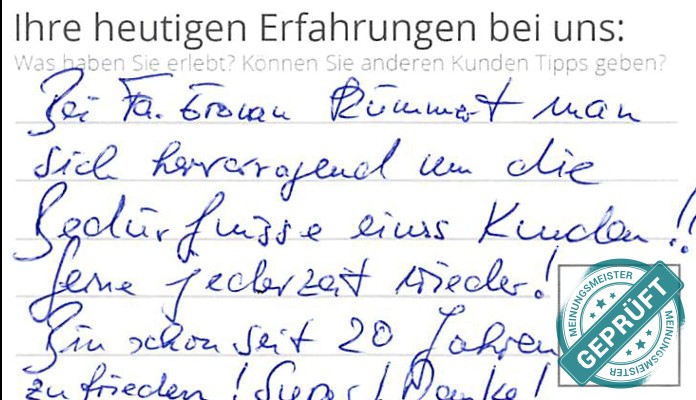 Ihre heutigen Erfahrungen bei uns:
Was haben Sie erlebt? Können Sie anderen Kunden Tipps geben?
Bei Fa. kümmert man
sich hervorragend um die
Bedürfnisse eines Kunden!!
Gerne jederzeit wieder!
Bin schon seit 20 Jahren
zufrieden! Super! Danke!
MEINUNGSMEISTER
GEPRÜFT
MEINUNGSMEISTER